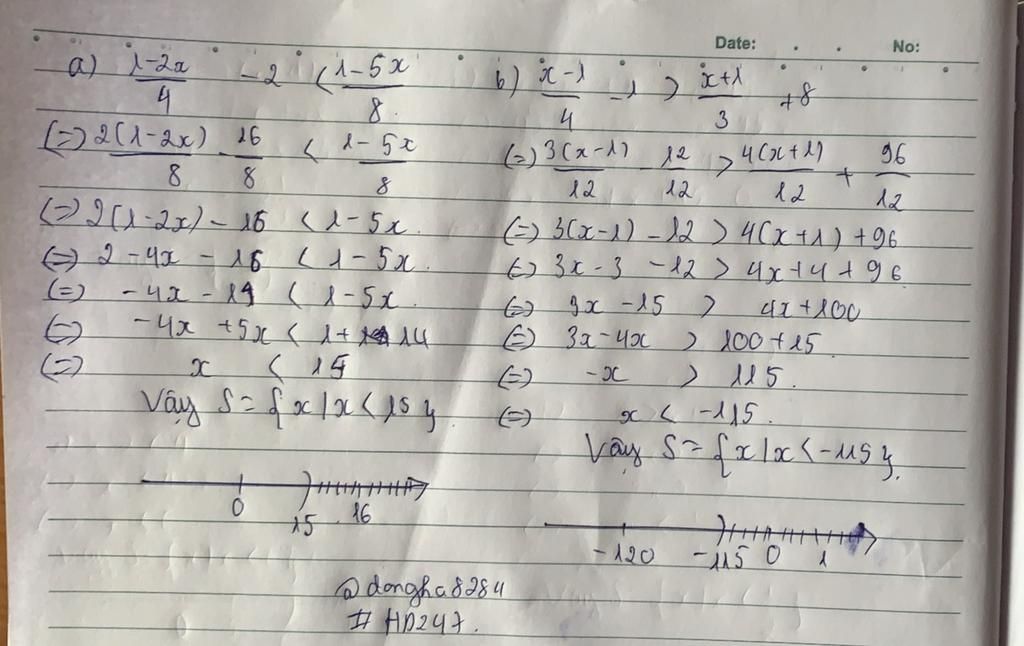 Date: . . No:
a) (1-2x)/4 - 2 < (1-5x)/8.
(=) 2(1-2x)/8 - 16/8 < 1-5x/8
(=) 2(1-2x) - 16 < 1-5x.
(=) 2-4x - 16 < 1-5x.
(=) -4x - 14 < 1-5x.
(=) -4x +5x < 1+ 14
(=) x < 15
Vậy S = {x/x < 15}
0 15 16
b) (x-1)/4 - 1 > (x+1)/3 + 8
(=) 3(x-1)/12 - 12/12 > 4(x+1)/12 + 96/12
(=) 3(x-1) - 12 > 4(x+1) + 96
(=) 3x - 3 - 12 > 4x + 4 + 96
(=) 3x - 15 > 4x + 100
(=) 3x - 4x > 100 + 15.
(=) -x > 115.
(=) x < -115.
Vậy S = {x/x < -115}.
-120 -115 0 1
@dongha8284
# HD247.